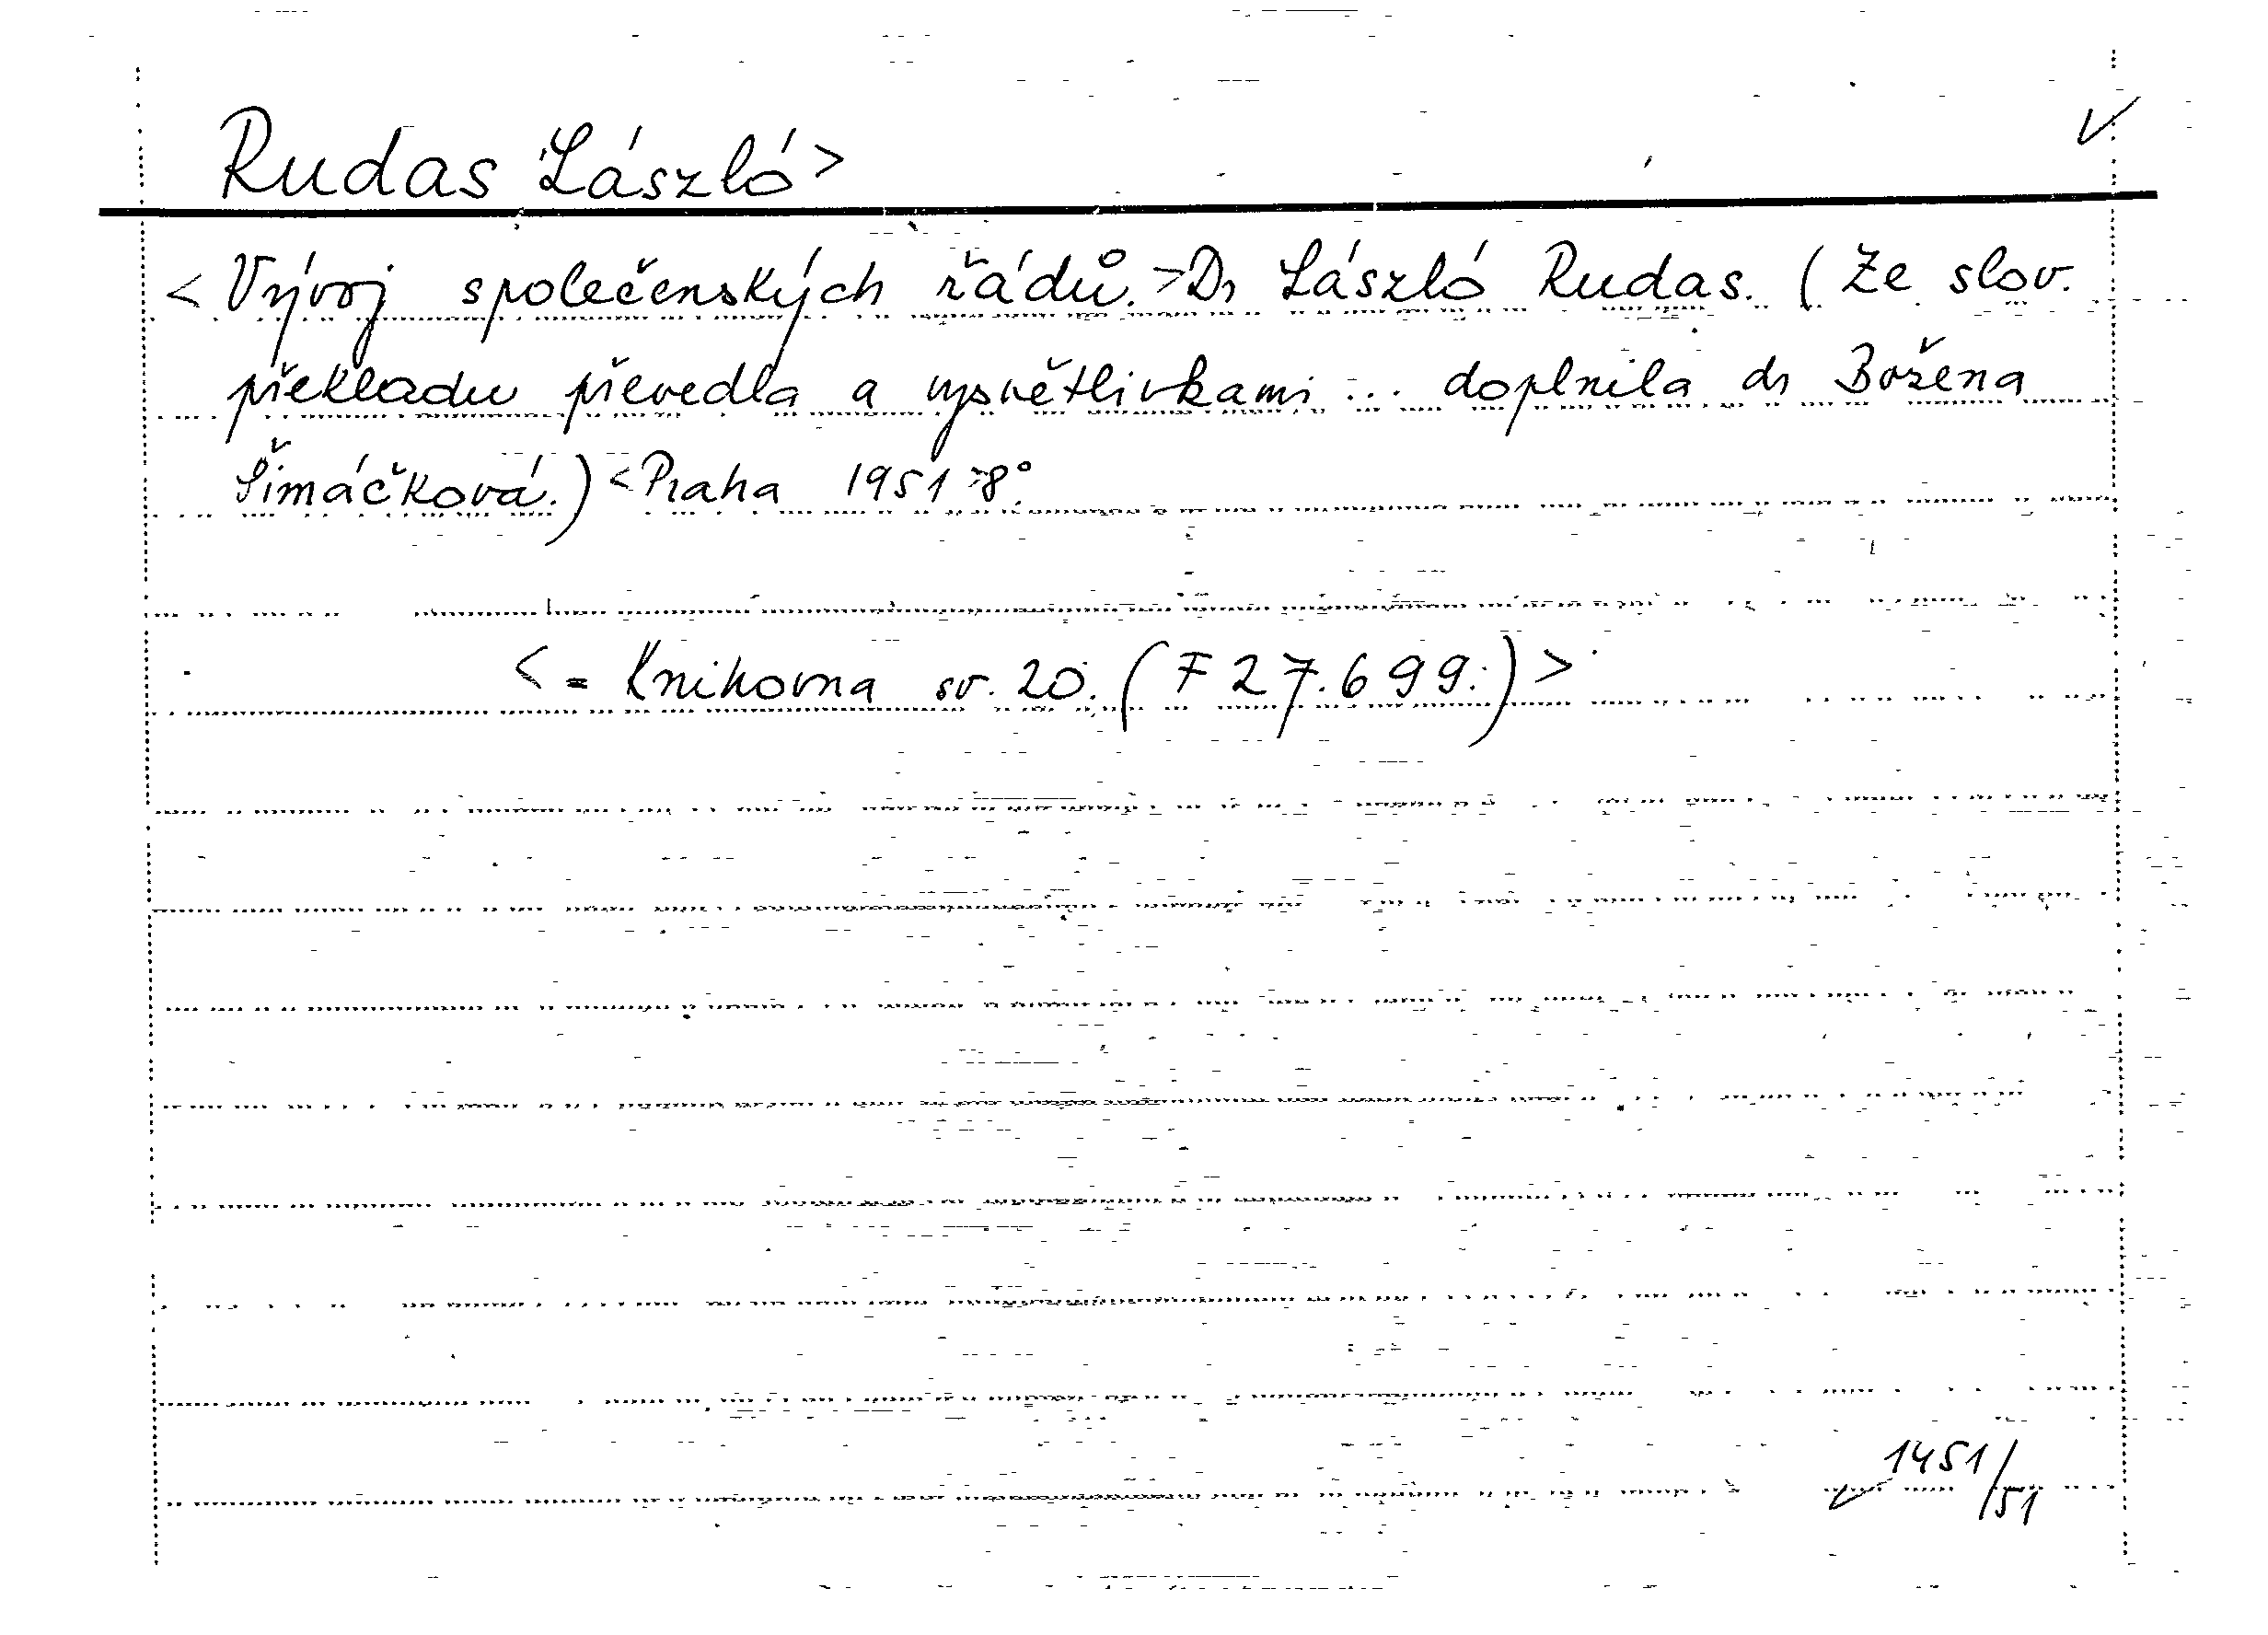 Rudas László>
<Vývoj společenských řádů.>Dr László Rudas. (Ze slov.
překladu převedla a vysvětlivkami ... doplnila dr Božena
Šimáčková.) <Praha 1951>8°.
<= Knihovna sv. 20. (F 27.699.)>
1451/51